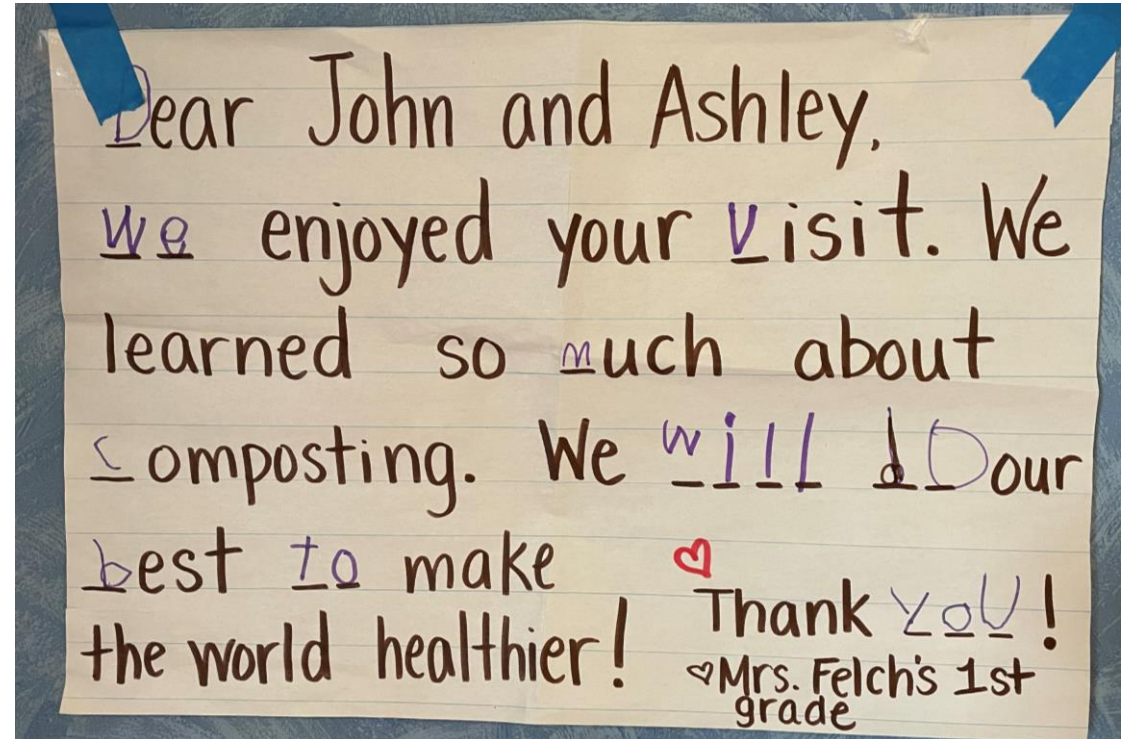 Dear John and Ashley,
We enjoyed your visit. We
learned so much about
composting. We will dO our
best to make
the world healthier!
Thank YoU!
Mrs. Felch's 1st
grade